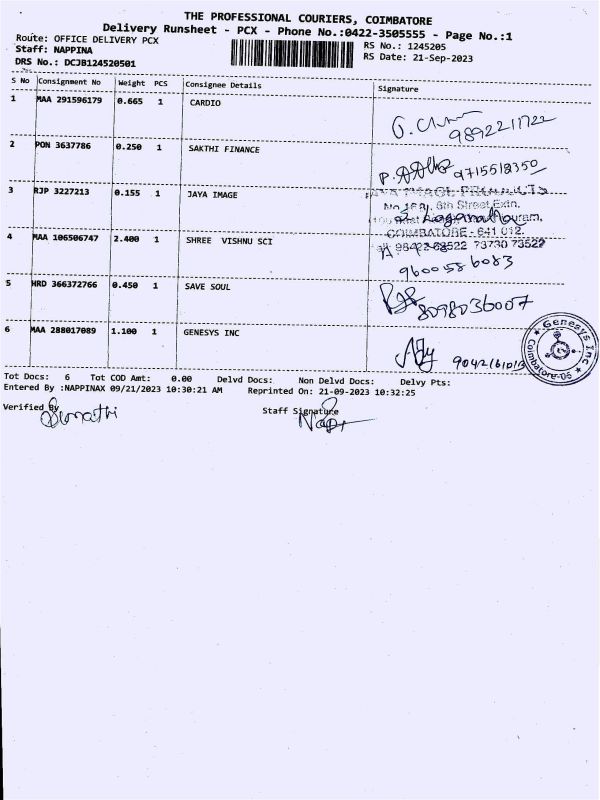 THE PROFESSIONAL COURIERS, COIMBATORE
Delivery Runsheet - PCX - Phone No.:0422-3505555 - Page No.:1
Route: OFFICE DELIVERY PCX
RS No.: 1245205
Staff: NAPPINA
RS Date: 21-Sep-2023
DRS No.: DCJB124520501
S No Consignment No Weight PCS Consignee Details Signature
1 MAA 291596179 0.665 1 CARDIO
9892211722
2 PON 3637786 0.250 1 SAKTHI FINANCE
9715518350
3 RJP 3227213 0.155 1 JAYA IMAGE
6th Street Extn,
COIMBATORE - 641 012.
4 MAA 106506747 2.400 1 SHREE VISHNU SCI
73730 73522
9600556083
5 HRD 366372766 0.450 1 SAVE SOUL
8098036007
6 MAA 288017089 1.100 1 GENESYS INC
Genesys Inc
Coimbatore-06
Tot Docs: 6 Tot COD Amt: 0.00 Delvd Docs: Non Delvd Docs: Delvy Pts:
Entered By :NAPPINAX 09/21/2023 10:30:21 AM Reprinted On: 21-09-2023 10:32:25
Verified By Staff Signature